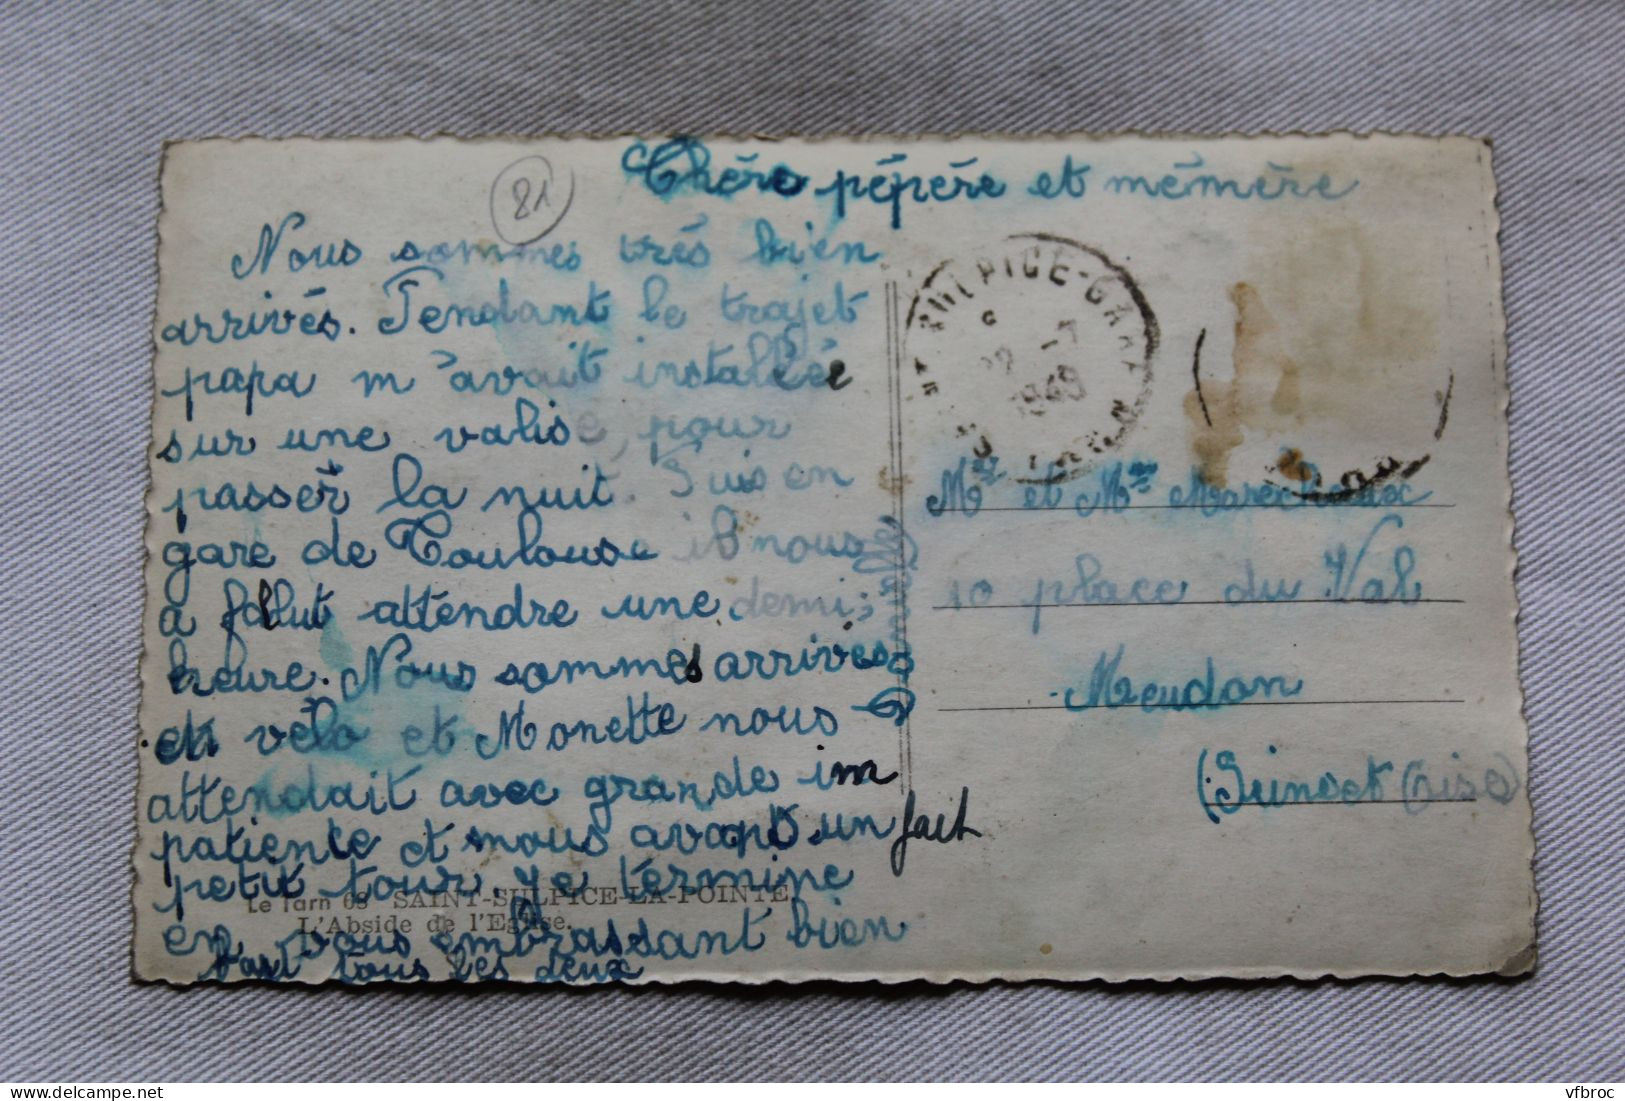 Chère pépère et mémère
81
Nous sommes très bien
arrivés. Pendant le trajet
papa m'avait installée
sur une valise, pour
passer la nuit. Puis en
gare de Toulouse il nous
a fallut attendre une demi;
heure. Nous sommes arrivés
en vélo et Monette nous
attendait avec grande im
patiente et nous avons fait un
petit tour. Je termine
en vous embrassant bien
tous les deux
Le Tarn 68 SAINT-SULPICE-LA-POINTE.
L'Abside de l'Eglise.
SULPICE-GRAP
22 -7
1949
Mr et Mme
10 place du Val
Meudon
(Seine et Oise)
vfbroc